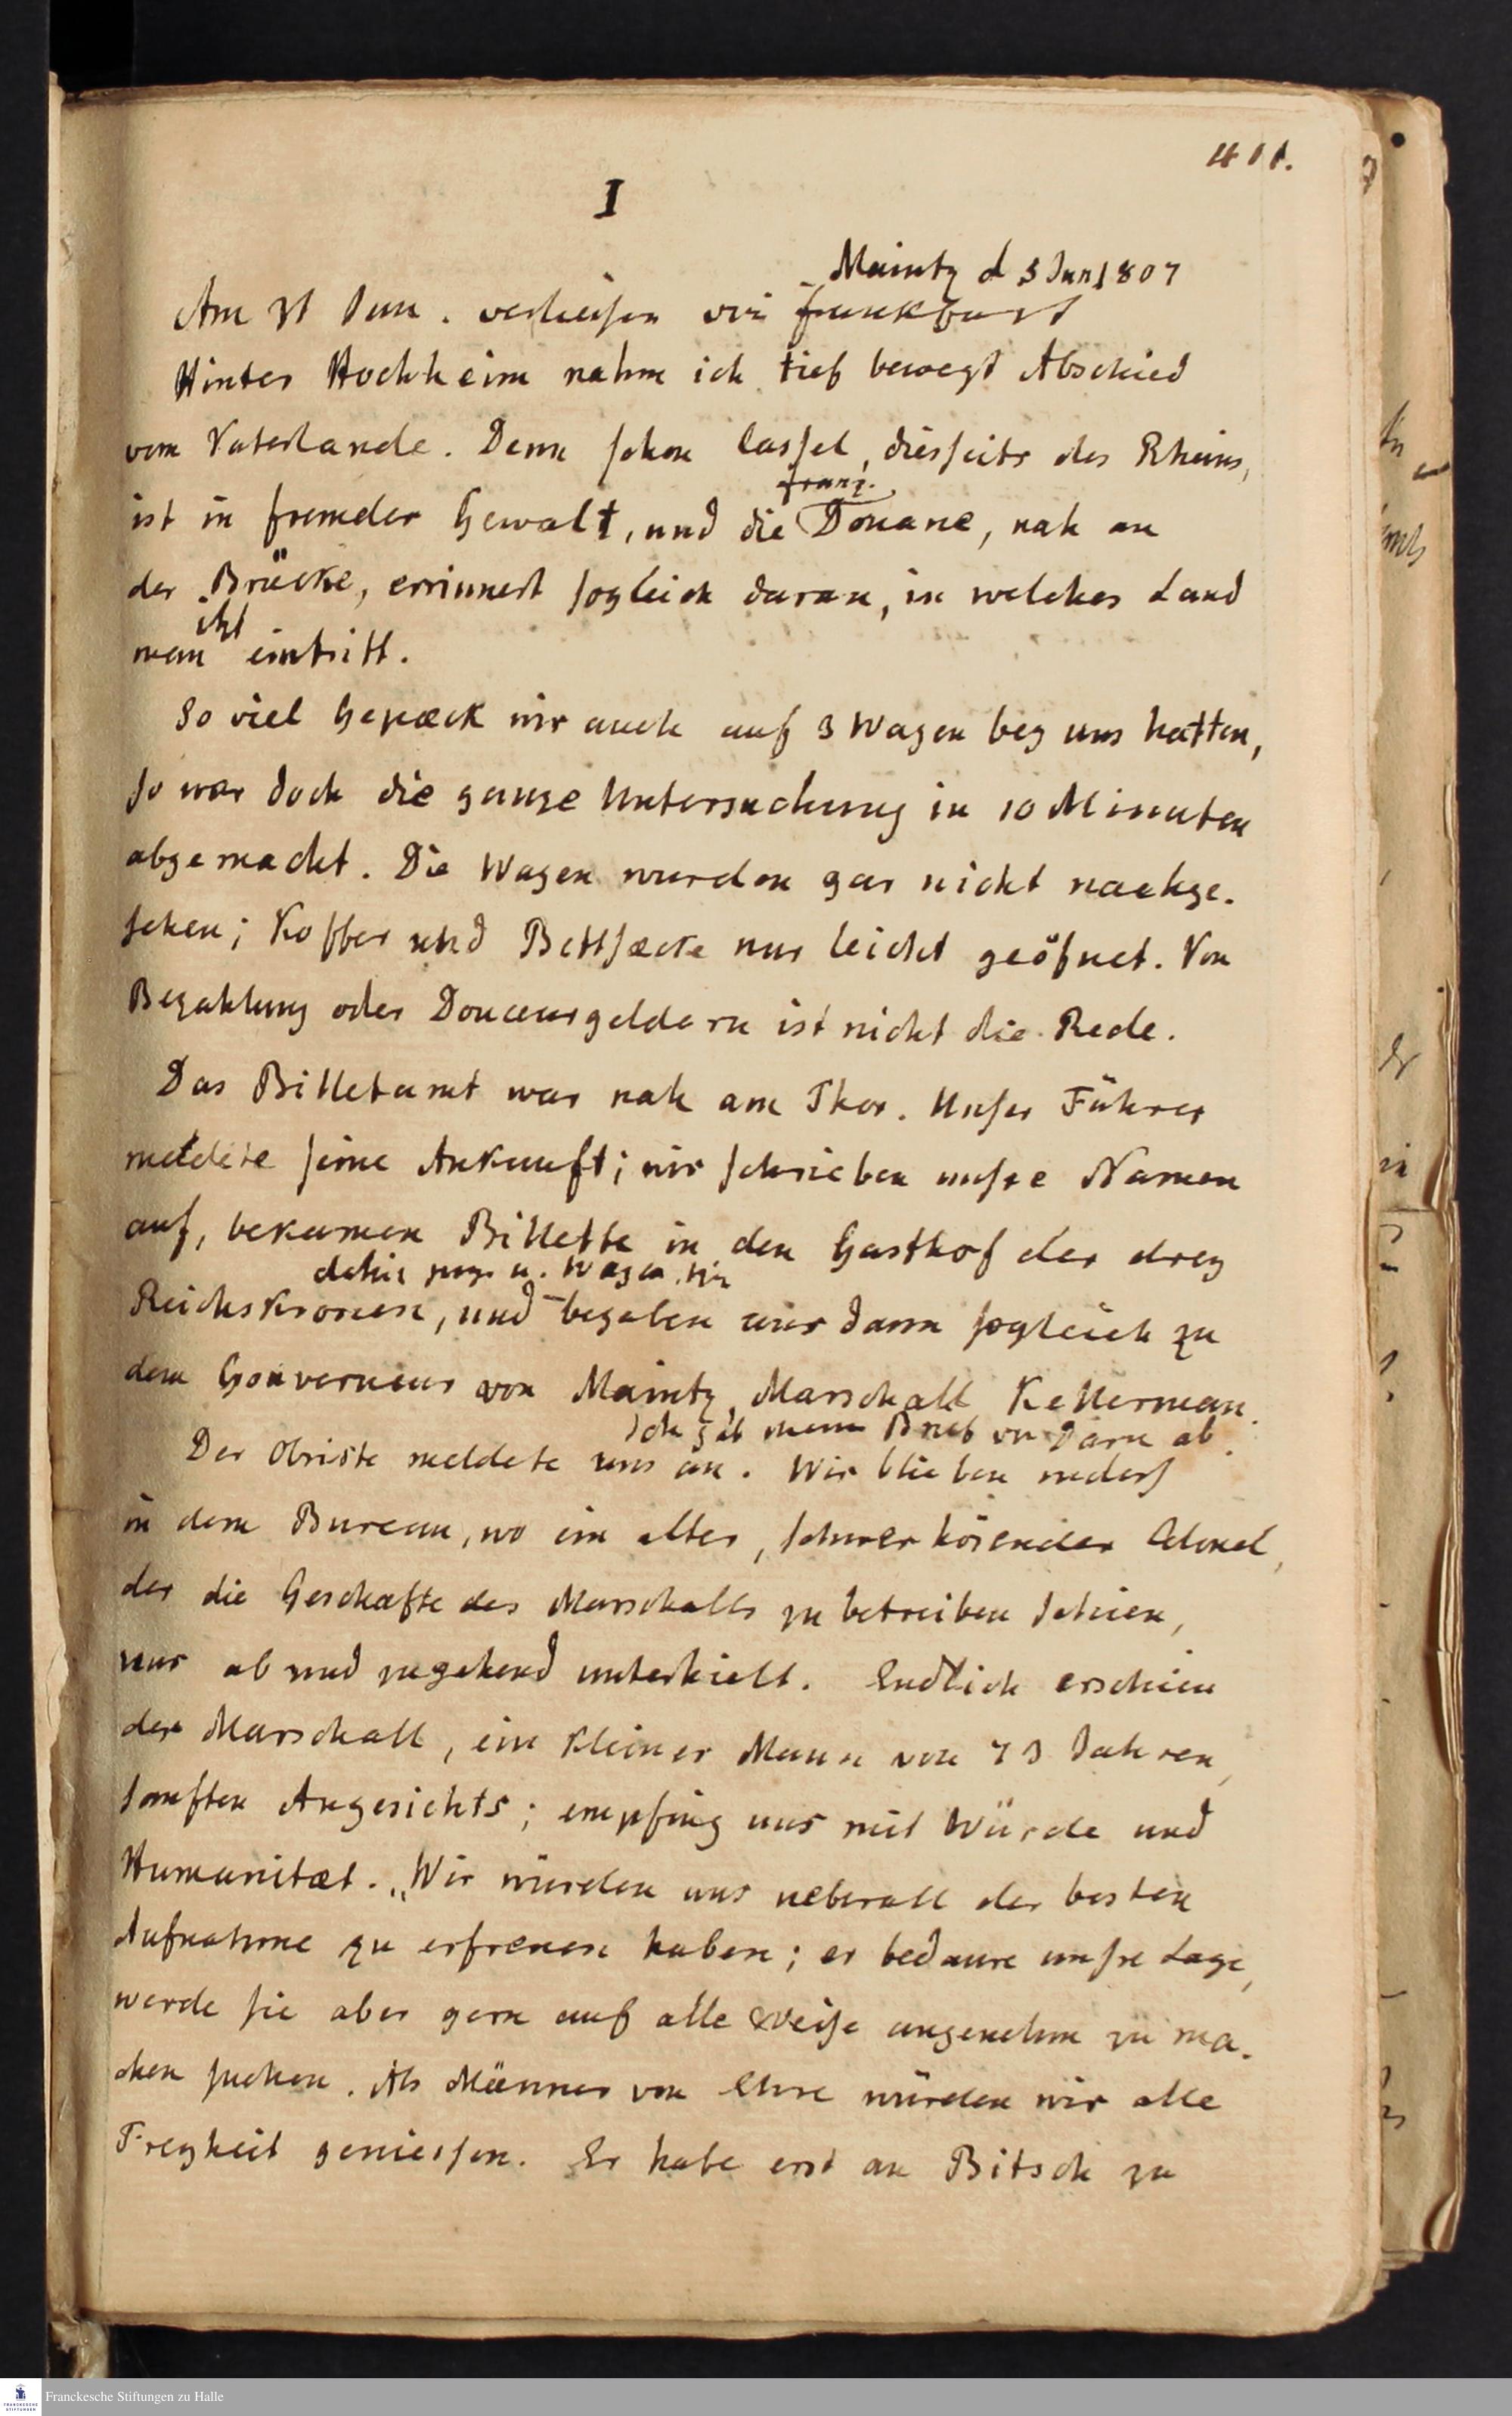 401.
I
Maintz d 3 Jun 1807
Am 31 Jun. verliessen wir Frankfurt
Hinter Hochheim nahm ich tief bewegt Abschied
vom Vaterlande. Denn schon Cassel, diesseits des Rheins,
franz.
ist in fremder Gewalt, und die Douane, nah an
der Brücke, errinnert sogleich daran, in welches Land
itzt
man eintritt.
So viel Gepæck wir auch auf 3 Wagen bey uns hatten,
so war doch die ganze Untersuchung in 10 Minuten
abgemacht. Die Wagen wurden gar nicht nachge-
sehen; Koffer und Bettsæcke nur leicht geöfnet. Von
Bezahlung oder Douceurgeldern ist nicht die Rede.
Das Billetamt war nah am Thor. Unser Führer
meldete seine Ankunft; wir schrieben unsre Namen
auf, bekamen Billette in den Gasthof der drey
dahin u. Wagen. wir
Reichskronen, und begaben uns dann sogleich zu
dem Gouverneur von Maintz, Marschall Kellerman.
Ich gab meinen Brief von Daru ab.
Der Obriste meldete uns an. Wir blieben indess
in dem Bureau, wo ein alter, schwerhörender Colonel,
der die Geschæfte des Marschalls zu betreiben schien,
uns ab und zugehend unterhielt. Endlich erschien
der Marschall, ein kleiner Mann von 73 Jahren,
sanften Angesichts; empfing uns mit Würde und
Humanitæt. „Wir würden uns ueberall der besten
Aufnahme zu erfreuen haben; er bedaure unsre Lage,
werde sie aber gern auf alle Weise angenehm zu ma-
chen suchen. Als Männer von Ehre würden wir alle
Freyheit geniessen. Er habe erst an Bitsch zu
Franckesche Stiftungen zu Halle